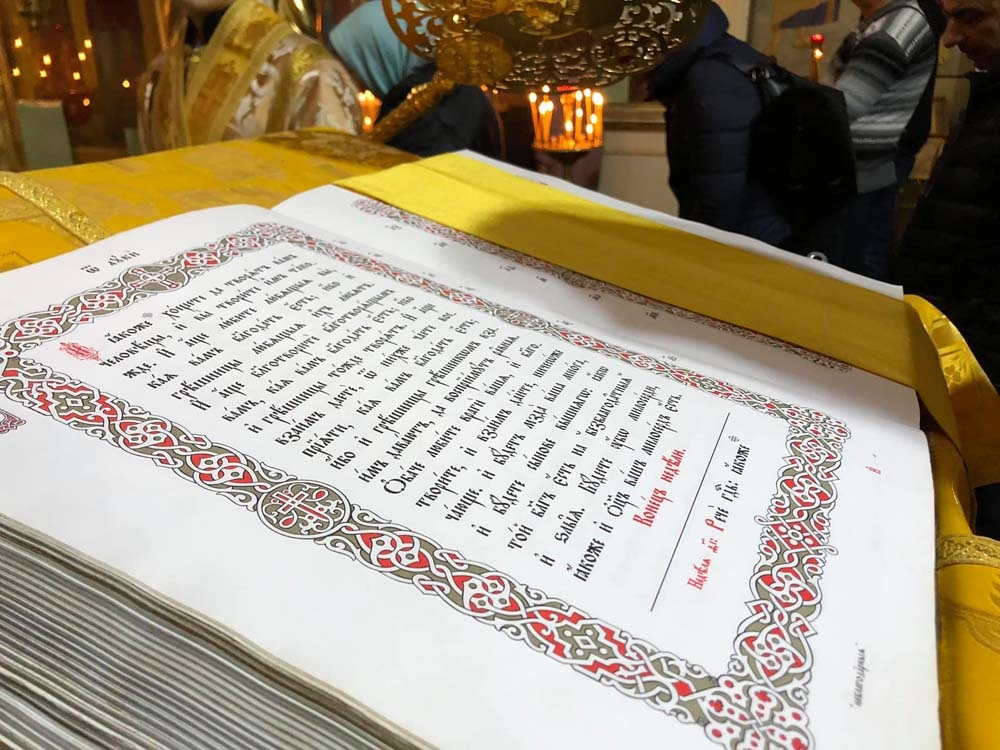 ѿ лꙋкѝ
ꙗ҆́коже хо́щете да творѧ́тъ ва́мъ
человѣ́цы, и҆ вы̀ твори́те и҆̀мъ та́кожде. И҆ а҆́ще лю́бите лю́бѧщыѧ вы̀,
ка́ѧ ва́мъ благода́ть є҆́сть; и҆́бо
грѣ̑шницы лю́бѧщыѧ и҆̀хъ лю́бѧтъ.
И҆ а҆́ще благотвори́те благотворѧ́щымъ
ва́мъ, ка́ѧ ва́мъ благода́ть є҆́сть; и҆́бо
и҆ грѣ̑шницы то́жде творѧ́тъ. И҆ а҆́ще
взаи́мъ даетѐ, ѿ ни́хже ча́ете воспрїѧ́ти, ка́ѧ ва́мъ благода́ть є҆́сть;
и҆́бо и҆ грѣ̑шницы грѣ́шникѡмъ взаи́мъ дава́ютъ, да воспрїи́мꙋтъ ра̑внаѧ.
Ѻ҆ба́че люби́те врагѝ ва́шѧ, и҆ благотвори́те, и҆ взаи́мъ да́йте, ничесѡ́же
ча́юще. и҆ бꙋ́детъ мзда̀ ва́ша мно́га,
и҆ бꙋ́дете сы́нове вы́шнѧгѡ: ꙗ҆́кѡ
то́й бл҃гъ є҆́сть на безблагода̑тныѧ
и҆ ѕлы̑ѧ. Бꙋ́дите ᲂу҆̀бо милосе́рди,
ꙗ҆́коже и҆ ѻ҆ц҃ъ ва́шъ милосе́рдъ є҆́сть.
Коне́цъ недѣ́ли.
Недѣ́лѧ
Речѐ гдⷭ҇ь: ꙗ҆́коже